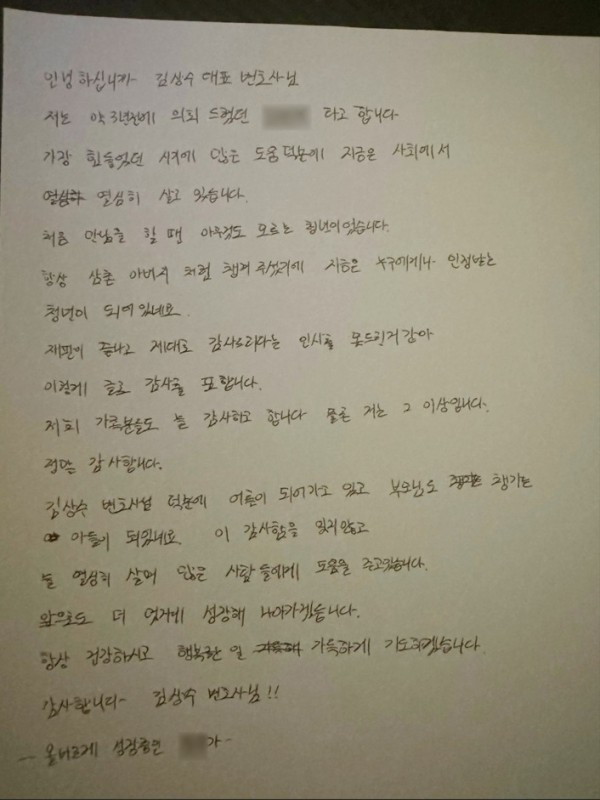 안녕하십니까 김상수 대표 변호사님
저는 약 3년전에 의뢰 드렸던 라고 합니다
가장 힘들었던 시기에 많은 도움 덕분에 지금은 사회에서
열심히 살고 있습니다.
처음 만남을 할 때 아무것도 모르는 청년이었습니다.
항상 삼촌 아버지 처럼 챙겨 주셨기에 지금은 누구에게나 인정받는
청년이 되어 있네요.
재판이 끝나고 제대로 감사드린다는 인사를 못드린거 같아
이렇게 글로 감사를 표합니다.
저희 가족분들도 늘 감사하고 합니다 물론 저는 그 이상입니다.
정말 감사합니다.
김상수 변호사님 덕분에 어른이 되어가고 있고 부모님도 챙기는
아들이 되었네요. 이 감사함을 잊지않고
늘 열심히 살며 많은 사람들에게 도움을 주고있습니다.
앞으로도 더 멋지게 성장해 나아가겠습니다.
항상 건강하시고 행복한 일 가득하게 기도하겠습니다.
감사합니다- 김상수 변호사님!!
- 올바르게 성장중인 가-